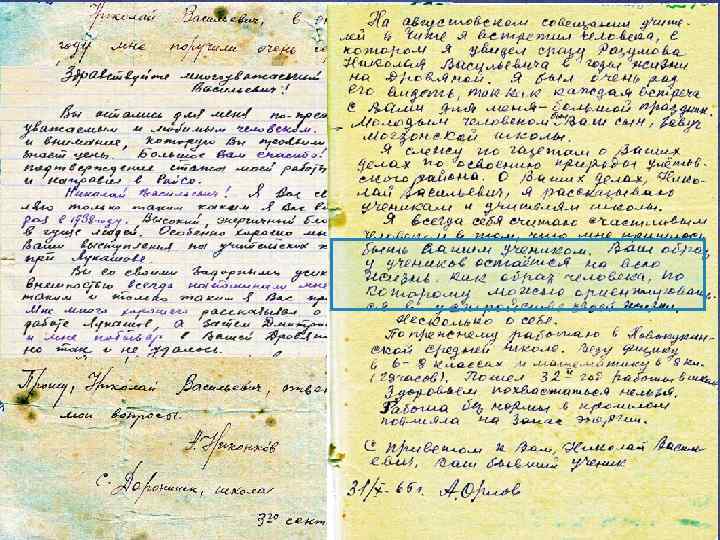 Николай Васильевич, в
году мне поручили очень
Здравствуйте многоуважаемый
Васильевич!
Вы остались для меня по-преж
уважаемым и любимым человеком.
и внимание, которую Вы проявил
знает цены. Большое Вам спасибо!
подтверждение стажа моей работы
и направил в Райсо.
Николай Васильевич! Я Вас
таким каким я Вас
раз в 1938 году. Высокий, энергичный
в гуще людей. Особенно хорошо
Ваши выступления на учительских
при Лукашове.
Вы со своими задорными
внешностью всегда напоминали мне
таким и только таким я Вас
Мне много хорошего рассказывал о
работе Лукашов, а затем Дмитри
и мне побывать в Вашей Дровян
но так и не удалось.
Прошу, Николай Васильевич,
мои вопросы.
с. Доронинск, школа
3го сент
На августовском совещании учите-
лей в Чите я встретил человека, в
котором я увидел сразу Разумова
Николая Васильевича в годы жизни
на Дровяной. Я был очень рад
его видеть, так как каждая встреча
с Вами для меня - большой праздник.
Молодым человеком был Ваш сын, завуч
Могзонской школы.
Я слежу по газетам о Ваших
делах по освоению природы улётов-
ского района. О Ваших делах, Нико-
лай Васильевич, я рассказываю
ученикам и учителям школы.
Я всегда себя считаю счастливым
человеком в том, что мне пришлось
быть Вашим учеником. Ваш образ
у учеников остается на всю
жизнь, как образ человека, по
которому можно ориентироваться
своей жизни.
Несколько о себе.
По прежнему работаю в Новокукин-
ской средней школе. Веду физику
в 6-8 классах и математику в 8 кл.
(28 часов). Пошел 32й год работы в школе
Здоровьем похвастаться нельзя.
Работа без нормы в прошлом
повлияла на запас энергии.
С приветом к Вам, Николай Василь-
евич, Ваш бывший ученик
31/X-65г. А. Орлов